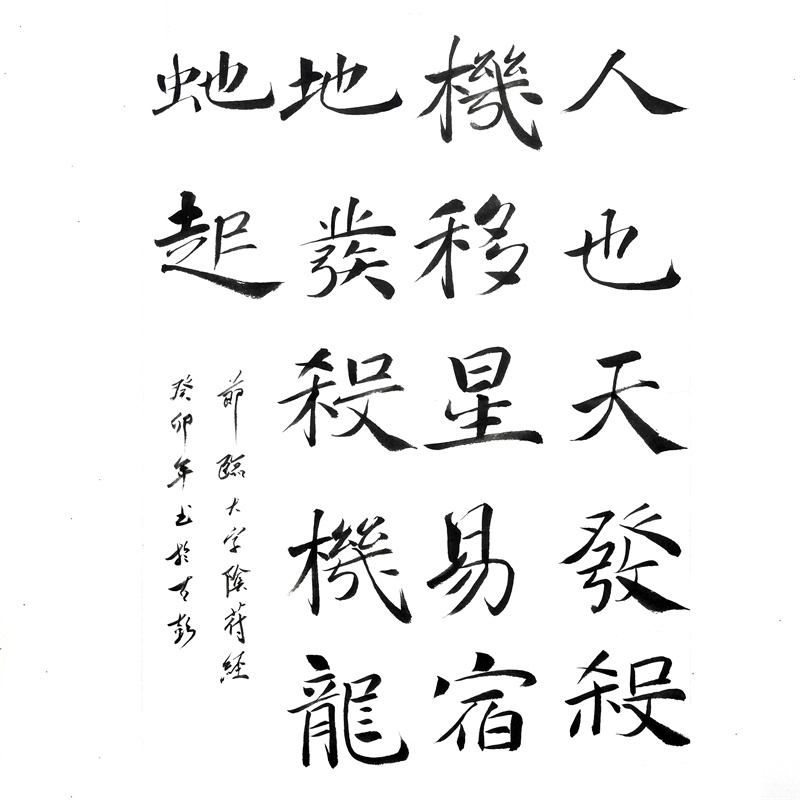 人也天發殺
機移星易宿
地發殺機龍
虵起
節臨大字陰苻經
癸卯年书於古彭